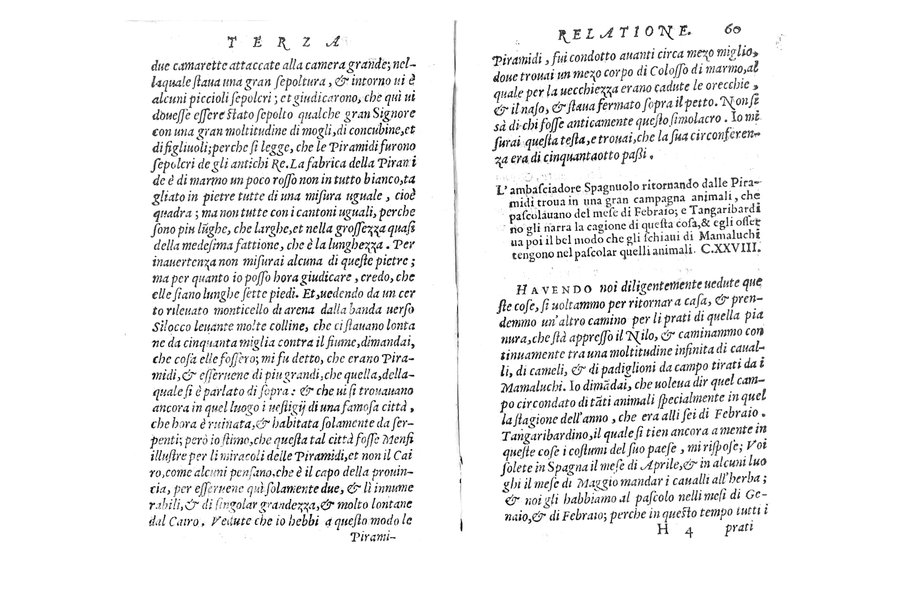 TERZA
due camarette attaccate alla camera grande; nel-
laquale ſtaua una gran ſepoltura, & intorno ui è
alcuni piccioli ſepolcri; et giudicarono, che quì ui
doueſſe eſſere ſtato ſepolto qualche gran Signore
con una gran moltitudine di mogli, di concubine, et
di figliuoli; perche ſi legge, che le Piramidi furono
ſepolcri de gli antichi Re. La fabrica della Pirami
de è di marmo un poco roſſo non in tutto bianco, ta
gliato in pietre tutte di una miſura uguale, cioè
quadra; ma non tutte con i cantoni uguali, perche
ſono piu lũghe, che larghe, et nella groſſezza quaſi
della medeſima fattione, che è la lunghezza. Per
inauertenza non miſurai alcuna di queſte pietre;
ma per quanto io poſſo hora giudicare, credo, che
elle ſiano lunghe ſette piedi. Et, uedendo da un cer
to rileuato monticello di arena dalla banda uerſo
Silocco leuante molte colline, che ci ſtauano lonta
ne da cinquanta miglia contra il fiume, dimandai,
che coſa elle foſſero; mi fu detto, che erano Pira-
midi, & eſſeruene di piu grandi, che quella, della-
quale ſi è parlato di ſopra: & che ui ſi trouauano
ancora in quel luogo i ueſtigij di una famoſa città,
che hora è ruinata, & habitata ſolamente da ſer-
penti; però io ſtimo, che queſta tal città foſſe Menfi
illuſtre per li miracoli delle Piramidi, et non il Cai
ro, come alcuni penſano, che è il capo della prouin-
cia, per eſſeruene quì ſolamente due, & lì innume
rabili, & di ſingolar grandezza, & molto lontane
dal Cairo. Vedute che io hebbi a queſto modo le
Pirami-
RELATIONE. 60
Piramidi, fui condotto auanti circa mezo miglio,
doue trouai un mezo corpo di Coloſſo di marmo, al
quale per la uecchiezza erano cadute le orecchie,
& il naſo, & ſtaua fermato ſopra il petto. Non ſi
sà di chi foſſe anticamente queſto ſimolacro. Io mi
ſurai queſta teſta, e trouai, che la ſua circonferen-
za era di cinquantaotto paſſi.
L'ambaſciadore Spagnuolo ritornando dalle Pira-
midi troua in una gran campagna animali, che
paſcolauano del meſe di Febraio; e Tangaribardi
no gli narra la cagione di queſta coſa, & egli oſſer
ua poi il bel modo che gli ſchiaui di Mamaluchi
tengono nel paſcolar quelli animali. C. XXVIII.
HAVENDO noi diligentemente uedute que
ſte coſe, ſi uoltammo per ritornar a caſa, & pren-
demmo un'altro camino per li prati di quella pia
nura, che ſtà appreſſo il Nilo, & caminammo con
tinuamente tra una moltitudine infinita di caual-
li, di cameli, & di padiglioni da campo tirati da i
Mamaluchi. Io dimãdai, che uoleua dir quel cam-
po circondato di tãti animali ſpecialmente in quel
la ſtagione dell'anno, che era alli ſei di Febraio.
Tangaribardino, il quale ſi tien ancora a mente in
queſte coſe i coſtumi del ſuo paeſe, mi riſpoſe; Voi
ſolete in Spagna il meſe di Aprile, & in alcuni luo
ghi il meſe di Maggio mandar i caualli all'herba;
& noi gli habbiamo al paſcolo nelli meſi di Ge-
naio, & di Febraio; perche in queſto tempo tutti i
H 4 prati